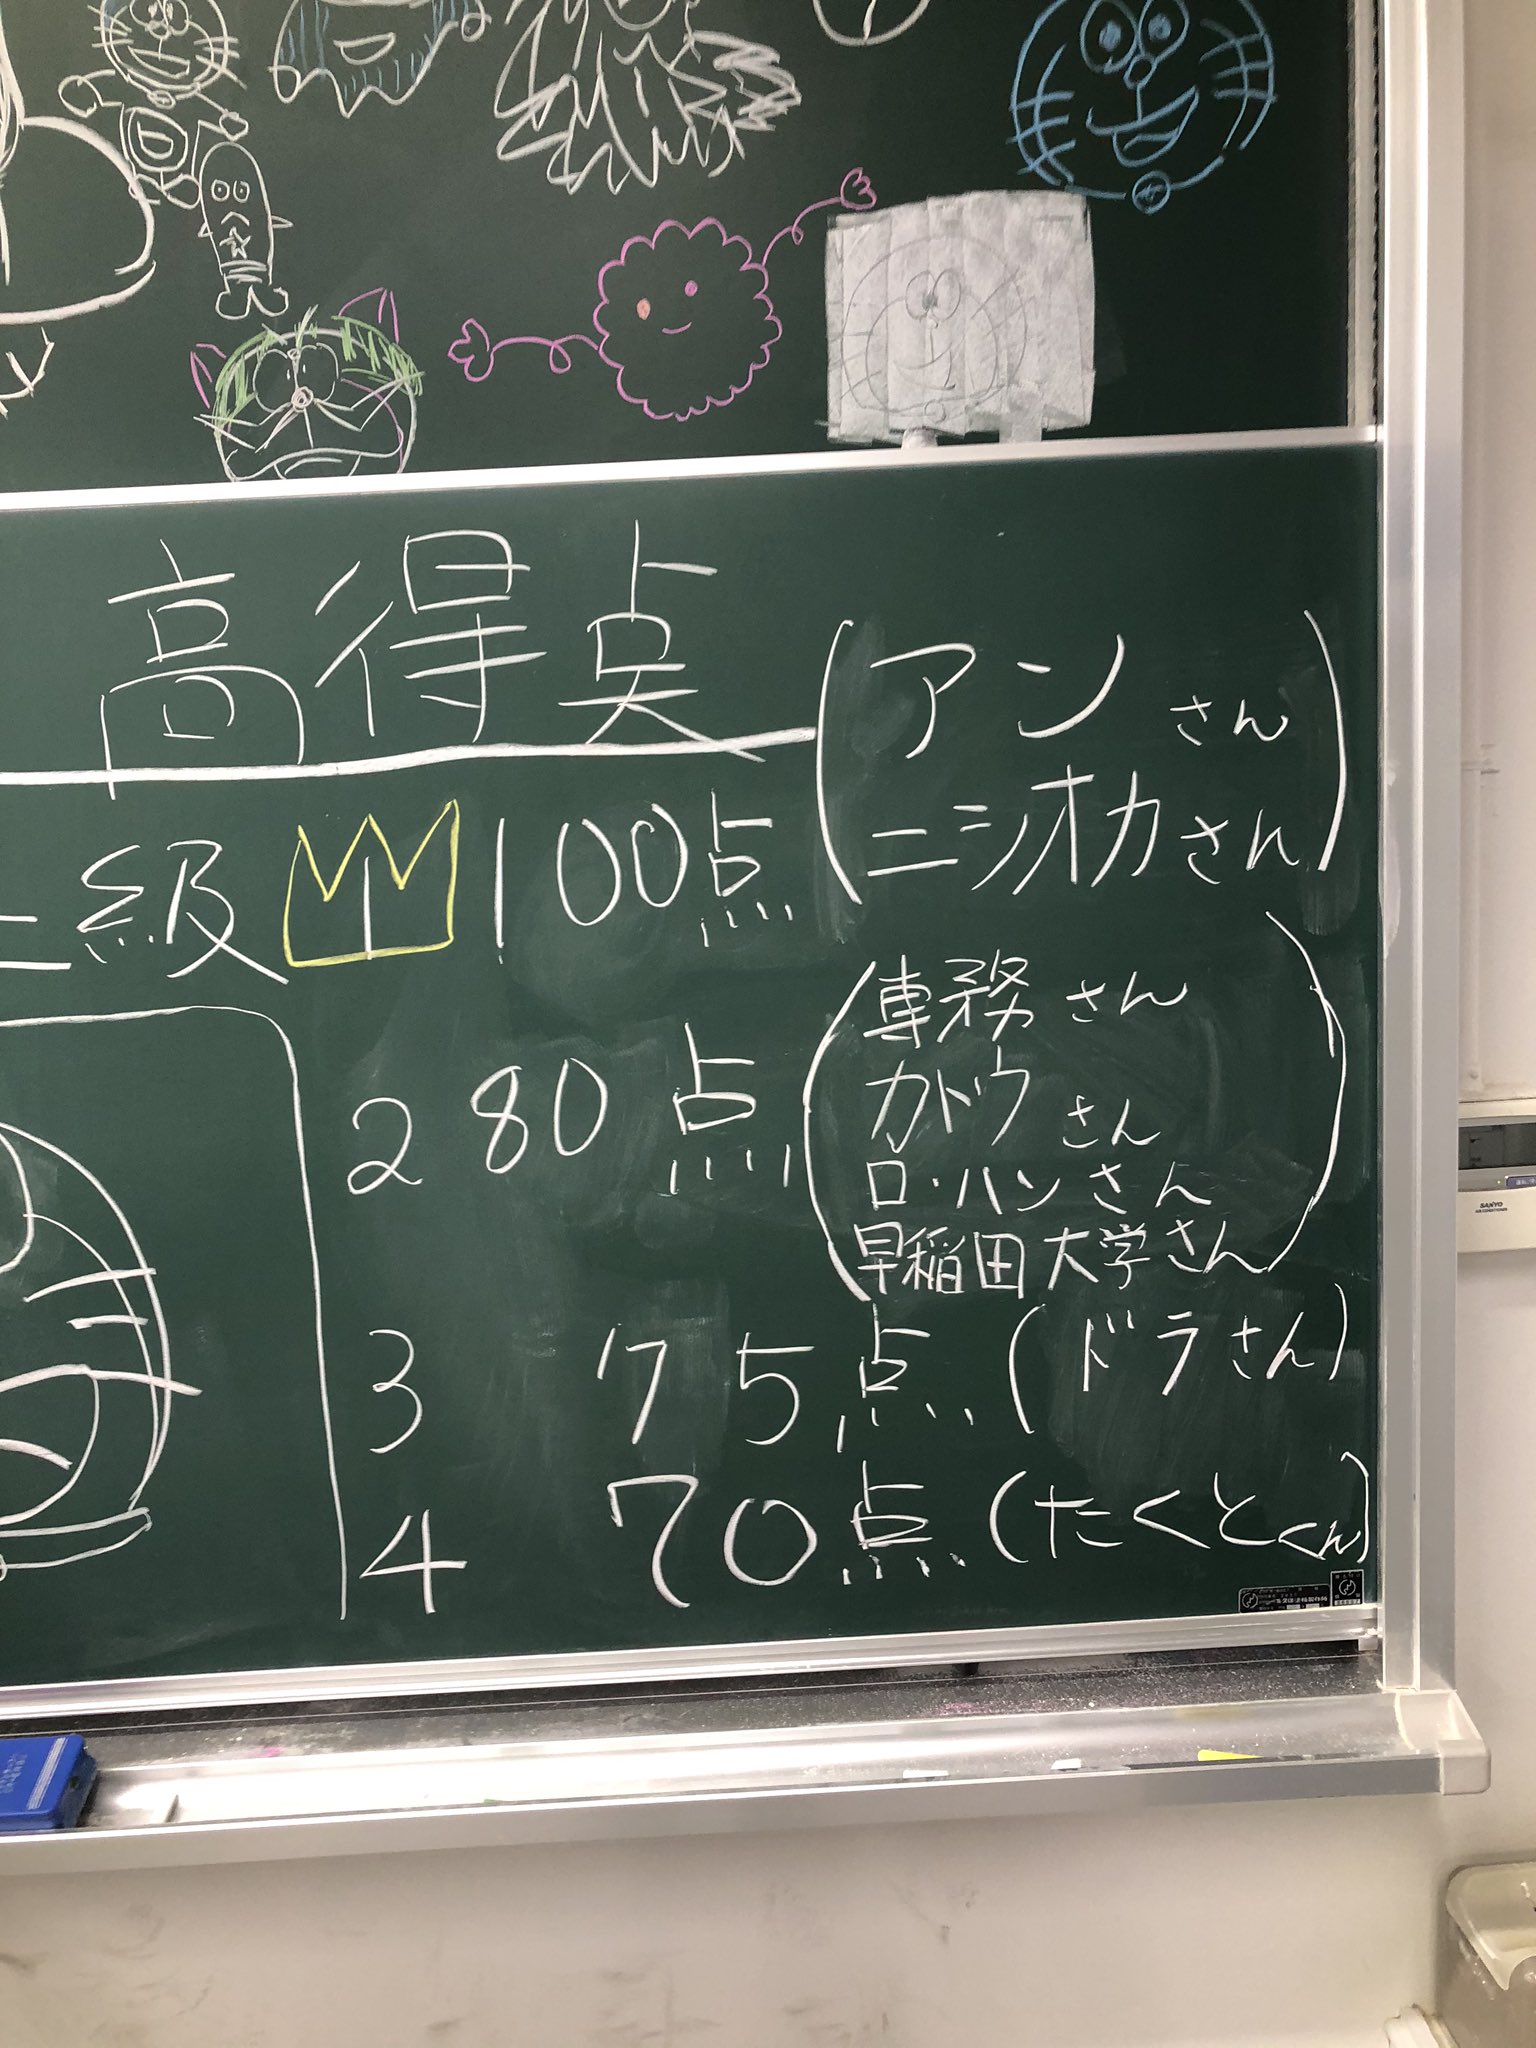 高得点
上級 1 100点 (アンさん
ニシオカさん)
2 80点 (専務さん
カドウさん
ロ・ハンさん
早稲田大学さん)
3 75点 (ドラさん)
4 70点 (たくとくん)
SANYO